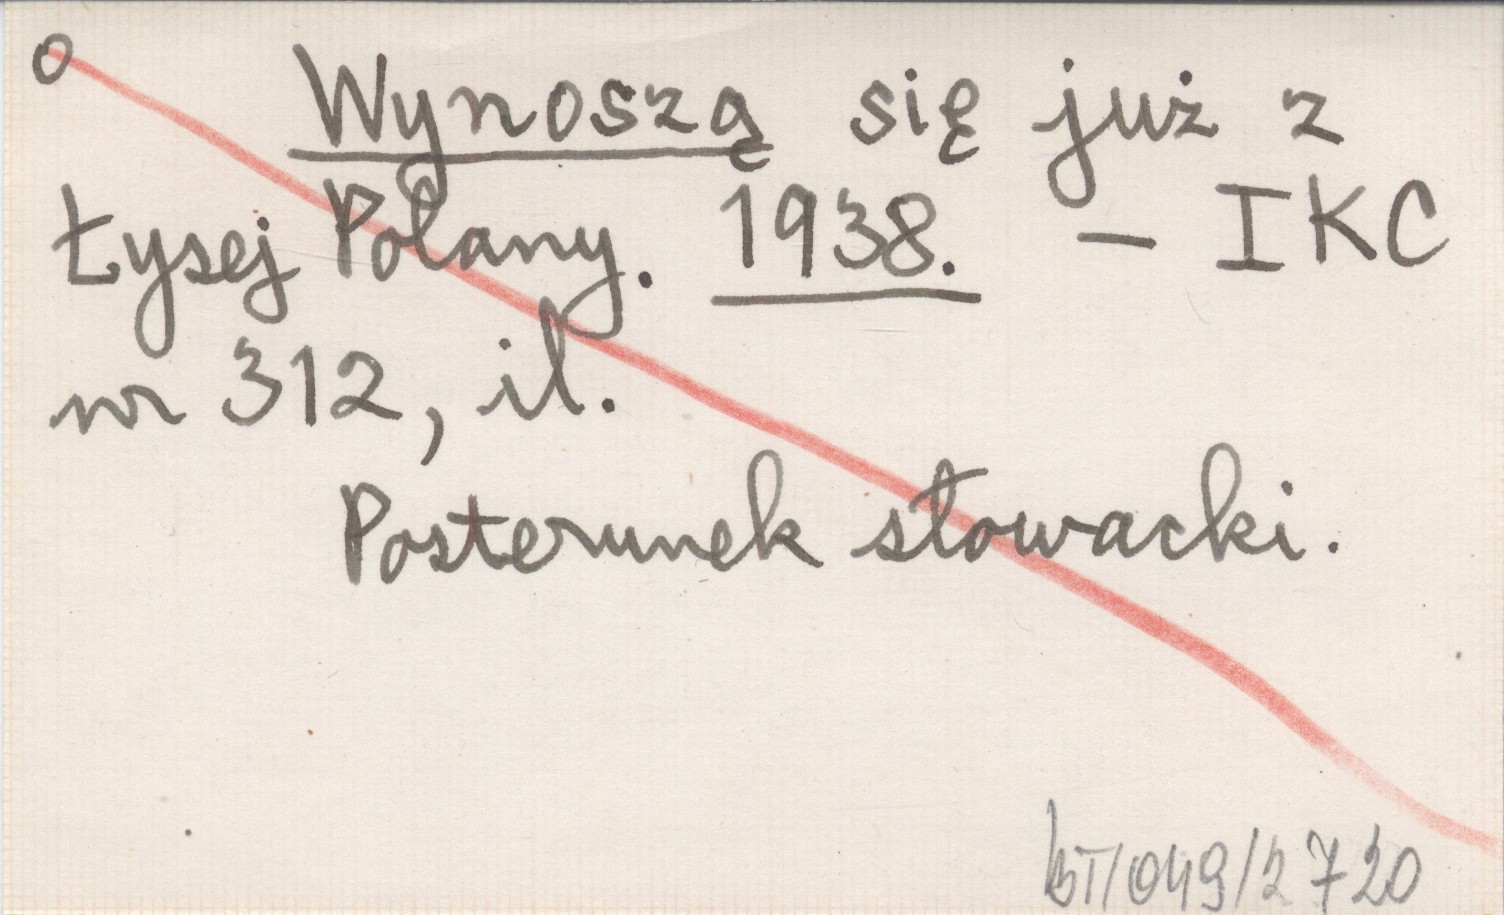 o Wynoszą się już z
Łysej Polany. 1938. – IKC
nr 312, il.
Posterunek słowacki.
BT/049/2720